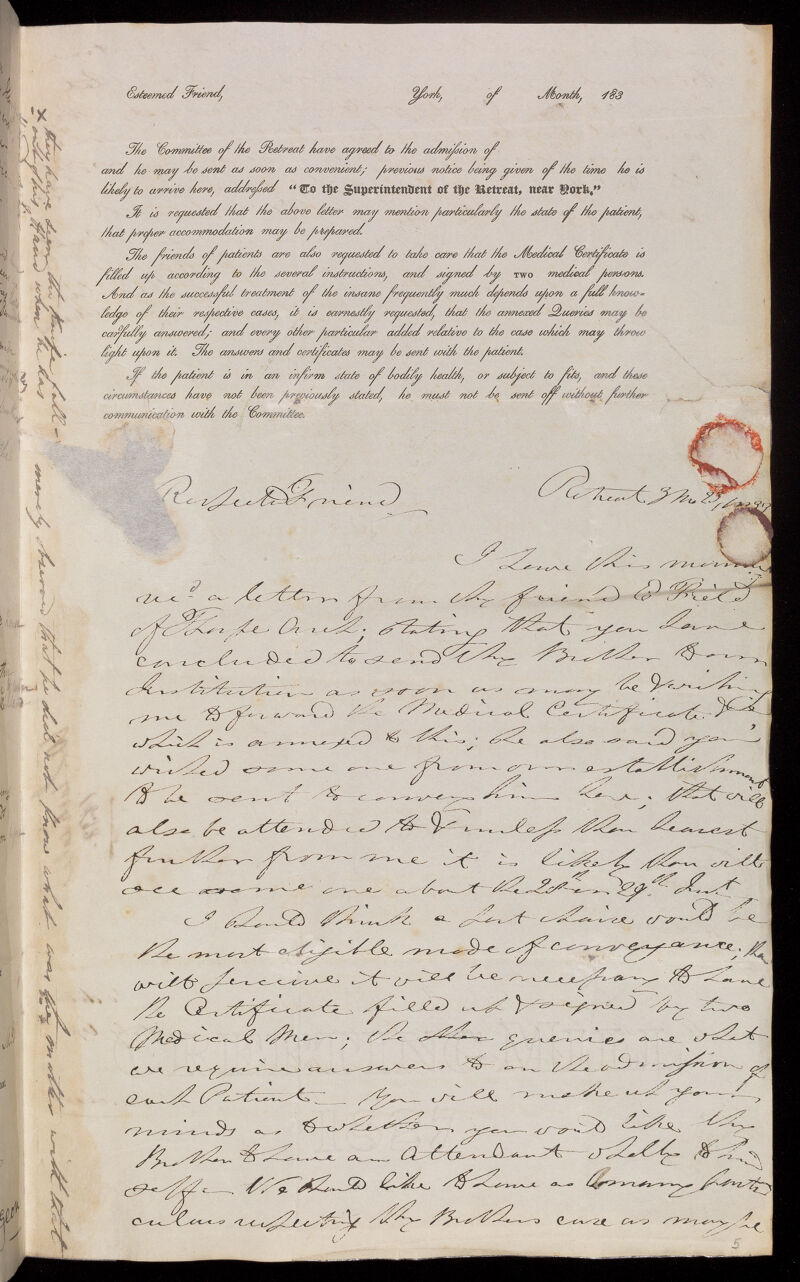 Esteemed Friend, York, of Month, 183
The Committee of the Retreat have agreed to the admiſsion of
and he may be sent as soon as convenient; previous notice being given of the time he is
likely to arrive here, addreſsed "To the Superintendent of the Retreat, near York."
It is requested that the above letter may mention particularly the state of the patient,
that proper accommodation may be prepared.
The friends of patients are also requested to take care that the Medical Certificate is
filled up according to the several instructions, and signed by TWO medical persons.
And as the successful treatment of the insane frequently much depends upon a full know-
ledge of their respective cases, it is earnestly requested, that the annexed Queries may be
carefully answered; and every other particular added relative to the case which may throw
light upon it. The answers and certificates may be sent with the patient.
If the patient is in an infirm state of bodily health, or subject to fits, and these
circumstances have not been previously stated, he must not be sent off without further
communication with the Committee.
Friend Retreat 3 Mo 23,
I have this morning
recd a letter from thy friend
of Thorpe Arch, stating that you have
concluded to send thy Brother to our
Institution as soon as may be & wishing
me to forward the Medical Certificate &c
which is annexed to this; he also said you
wished some one from our establishment
to be sent to convey him here, that will
also be attended to & unleſs thou hearest
further from me it is likely thou wilt
see some one about the 28th or 29th Inst
I should think a post chaise would be
the most eligible mode of conveyance; thou
wilt perceive it will be neceſsary to have
the Certificate filled up & signed by two
Medical Men; the queries are what
we require answers to on the admiſsion of
each Patient - You will make up your
minds as to whether you would like thy
Brother to have an attendant wholly to him
self - We should like to have as many parti
culars respecting thy Brothers case as may be
5
they have seen the
& out of his hand when he has merely sworn that he did not know what was the matter with that